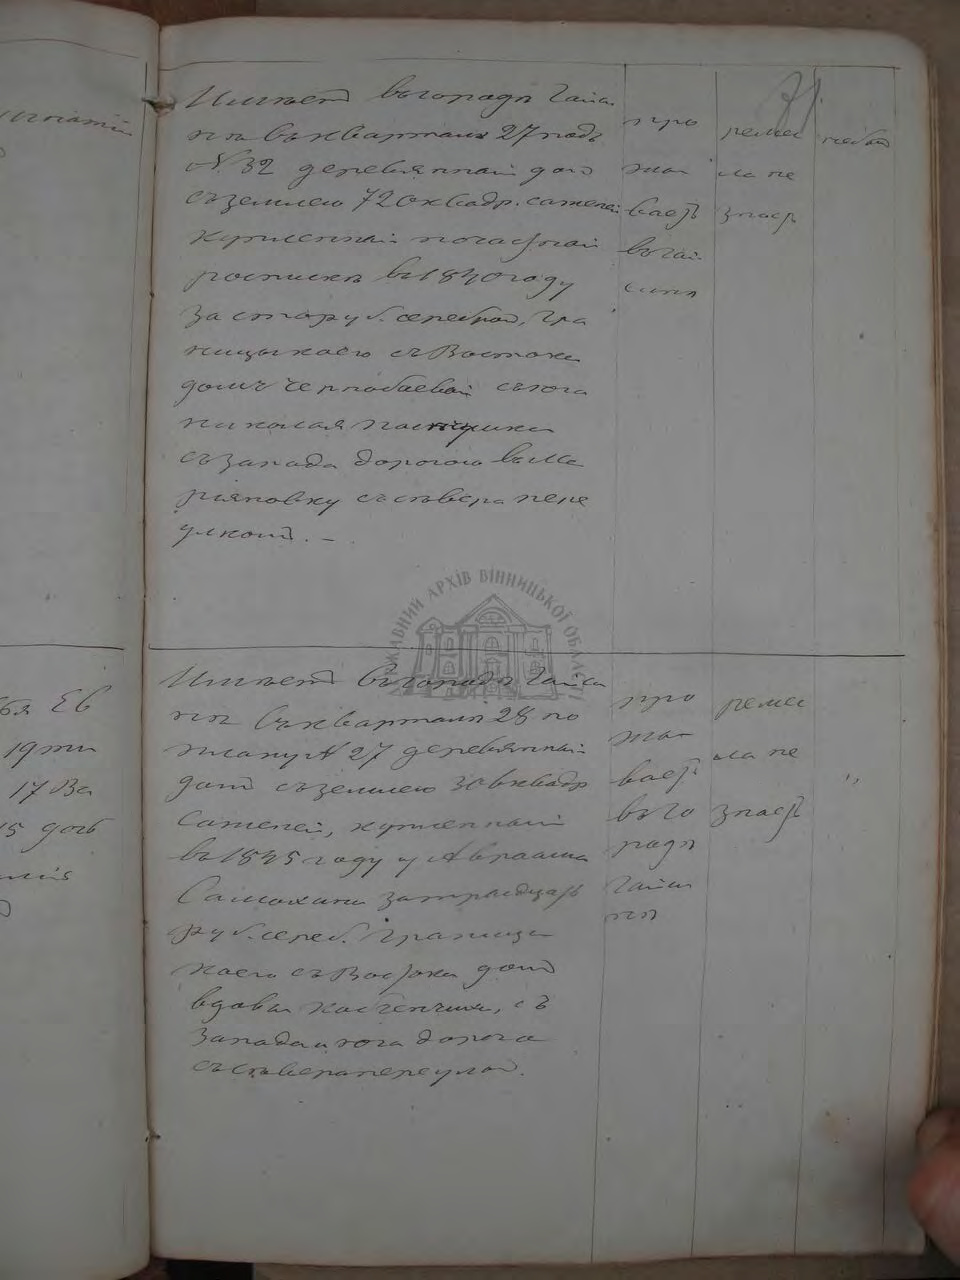 Имѣетъ въ городѣ Гайси
нѣ въ кварталѣ 27 подъ
№ 32 деревянный домъ
съ землею 720 квадр. саженей
купленный по частной
росписки въ 1840 году
за сто руб. серебром, Гра
ницы коего съ Востока
домъ съ юга
николая
съ запада дорогою въ Ма
ріяновку съ сѣвера пере
улкомъ. —
про
жи
ваетъ
въ Гай
синѣ
ремес
ла не
знаетъ
Имѣетъ въ городѣ Гайси
нѣ въ кварталѣ 28 по
плану № 27 деревянный
домъ съ землею квадр
саженей, купленный
въ 1845 году у Авраама
за тридцать
руб. сереб. Граница
коего съ Востока домъ
вдовы съ
Запада и юга дорога
съ сѣвера переулок.
про
жи
ваетъ
въ го
родѣ
Гайси
нѣ
ремес
ла не
знаетъ
"
19 ти
17 Ва
15 дочь
ДЕРЖАВНИЙ АРХІВ ВІННИЦЬКОЇ ОБЛАСТІ